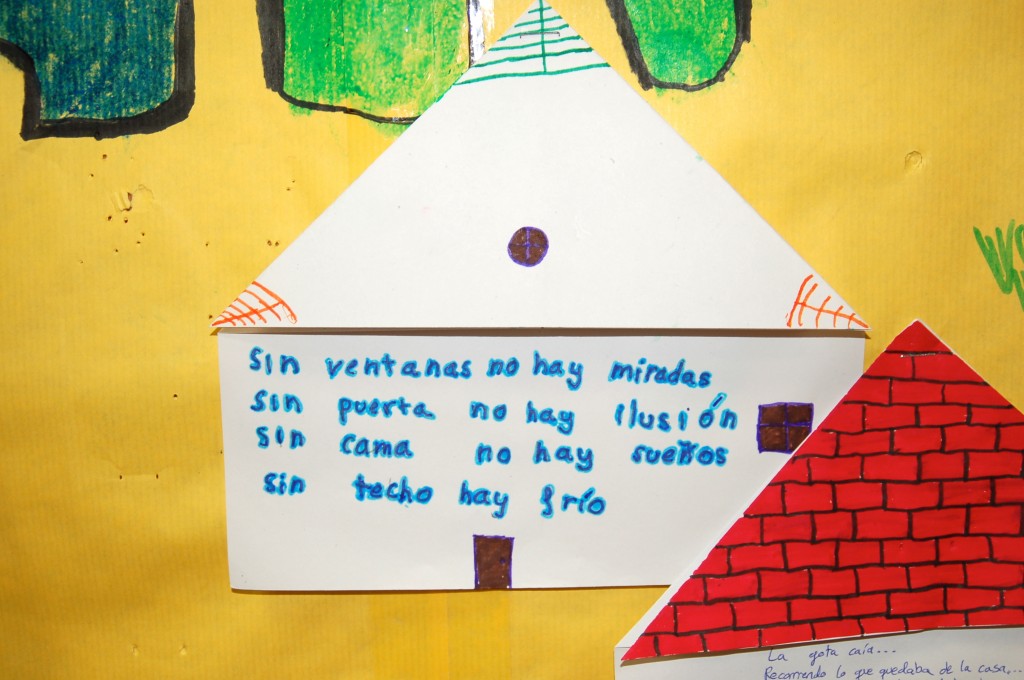 sin ventanas no hay miradas
sin puerta no hay ilusión
sin cama no hay sueños
sin techo hay frío
La gota caía...
Recorriendo lo que quedaba de la casa...